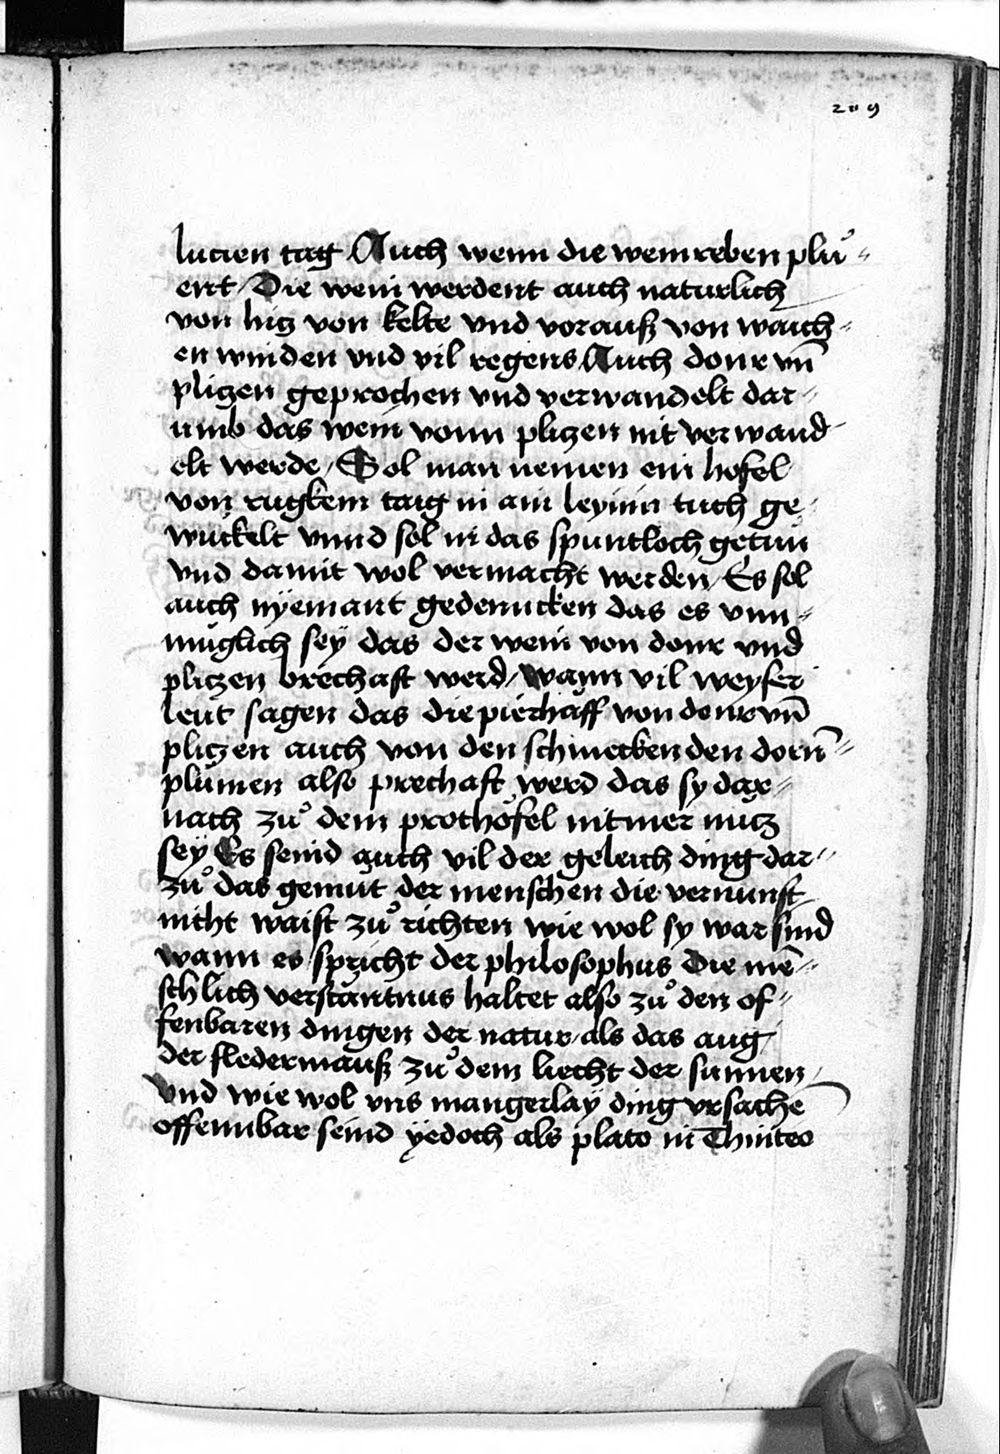 209
lucien tag Auch wenn die weinreben plů⸗
ent / Die wein werdent auch naturlich
von hitz von kelte vnd vorauß von waich⸗
en winden vnd vil regens Auch donr vn̄
plitzen geprochen vnd verwandelt dar⸗
umb das wein vonn plitzen nit verwand⸗
elt werde / Sol man nemen ein hofel
von rugkem taig in ain leyinin tuch ge⸗
wickelt vnnd sol in das spuntloch getan
vnd damit wol vermacht werden / Es sol
auch nÿemant gedenncken das es vnn⸗
muglich seÿ das der wein von donr vnd
plitzen brechaft werd / wann vil weyser
leut sagen das die pierhäff von donr vn̄
plitzen auch von den schmeckenden dorn̄⸗
plůmen also prechaft werd das sy dar⸗
nach zů dem prothöfel nitmer nutz
seÿ Es seind auch vil der geleich ding dar⸗
zů das gemut der menschen die vernunft
nicht waist zů richten wie wol sy war sind
wann es spricht der philosophus Die mē⸗
schlich verstantnus haltet also zů den of⸗
fenbaren dingen der natur / als das aug
der fledermauß zů dem liecht der sunnen /
Vnd wie wol vns mangerlaÿ ding vrsache
offennbar seind ÿedoch als plato in Thimeo